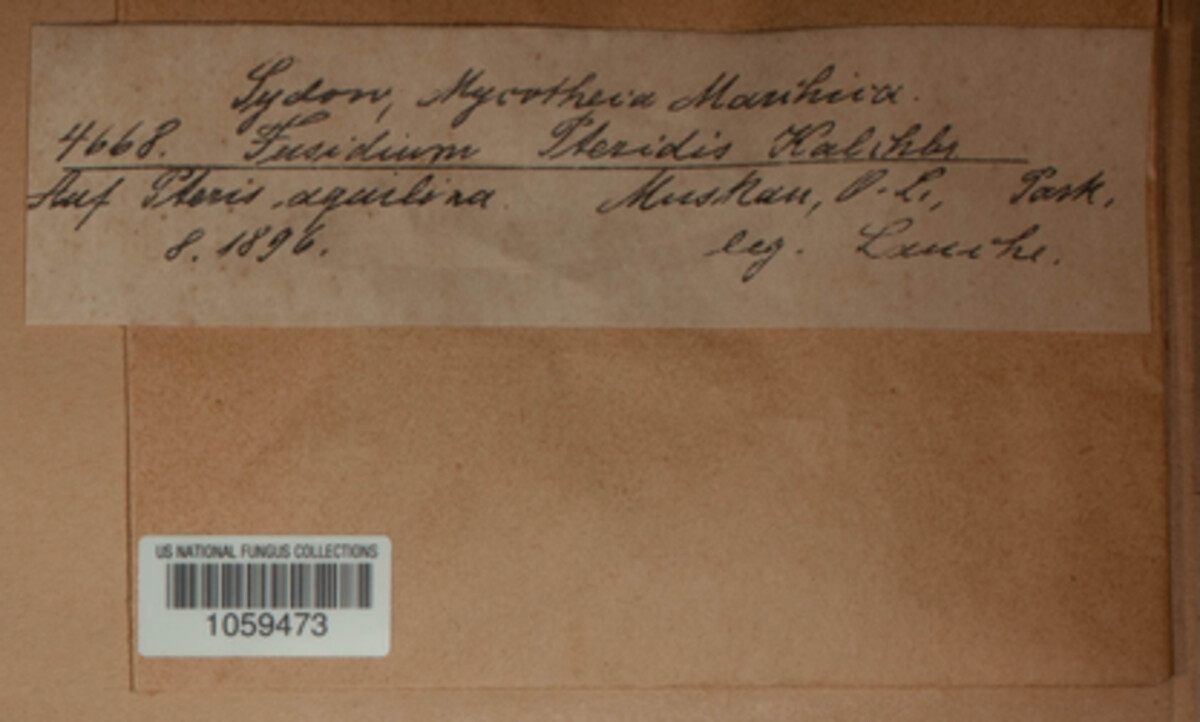 Sydow, Mycotheca Marchica.
4668. Fusidium Pteridis Kalchbr.
Auf Pteris aquilina. Muskau, O.-L., Park.
8. 1896. leg.
US NATIONAL FUNGUS COLLECTIONS
1059473